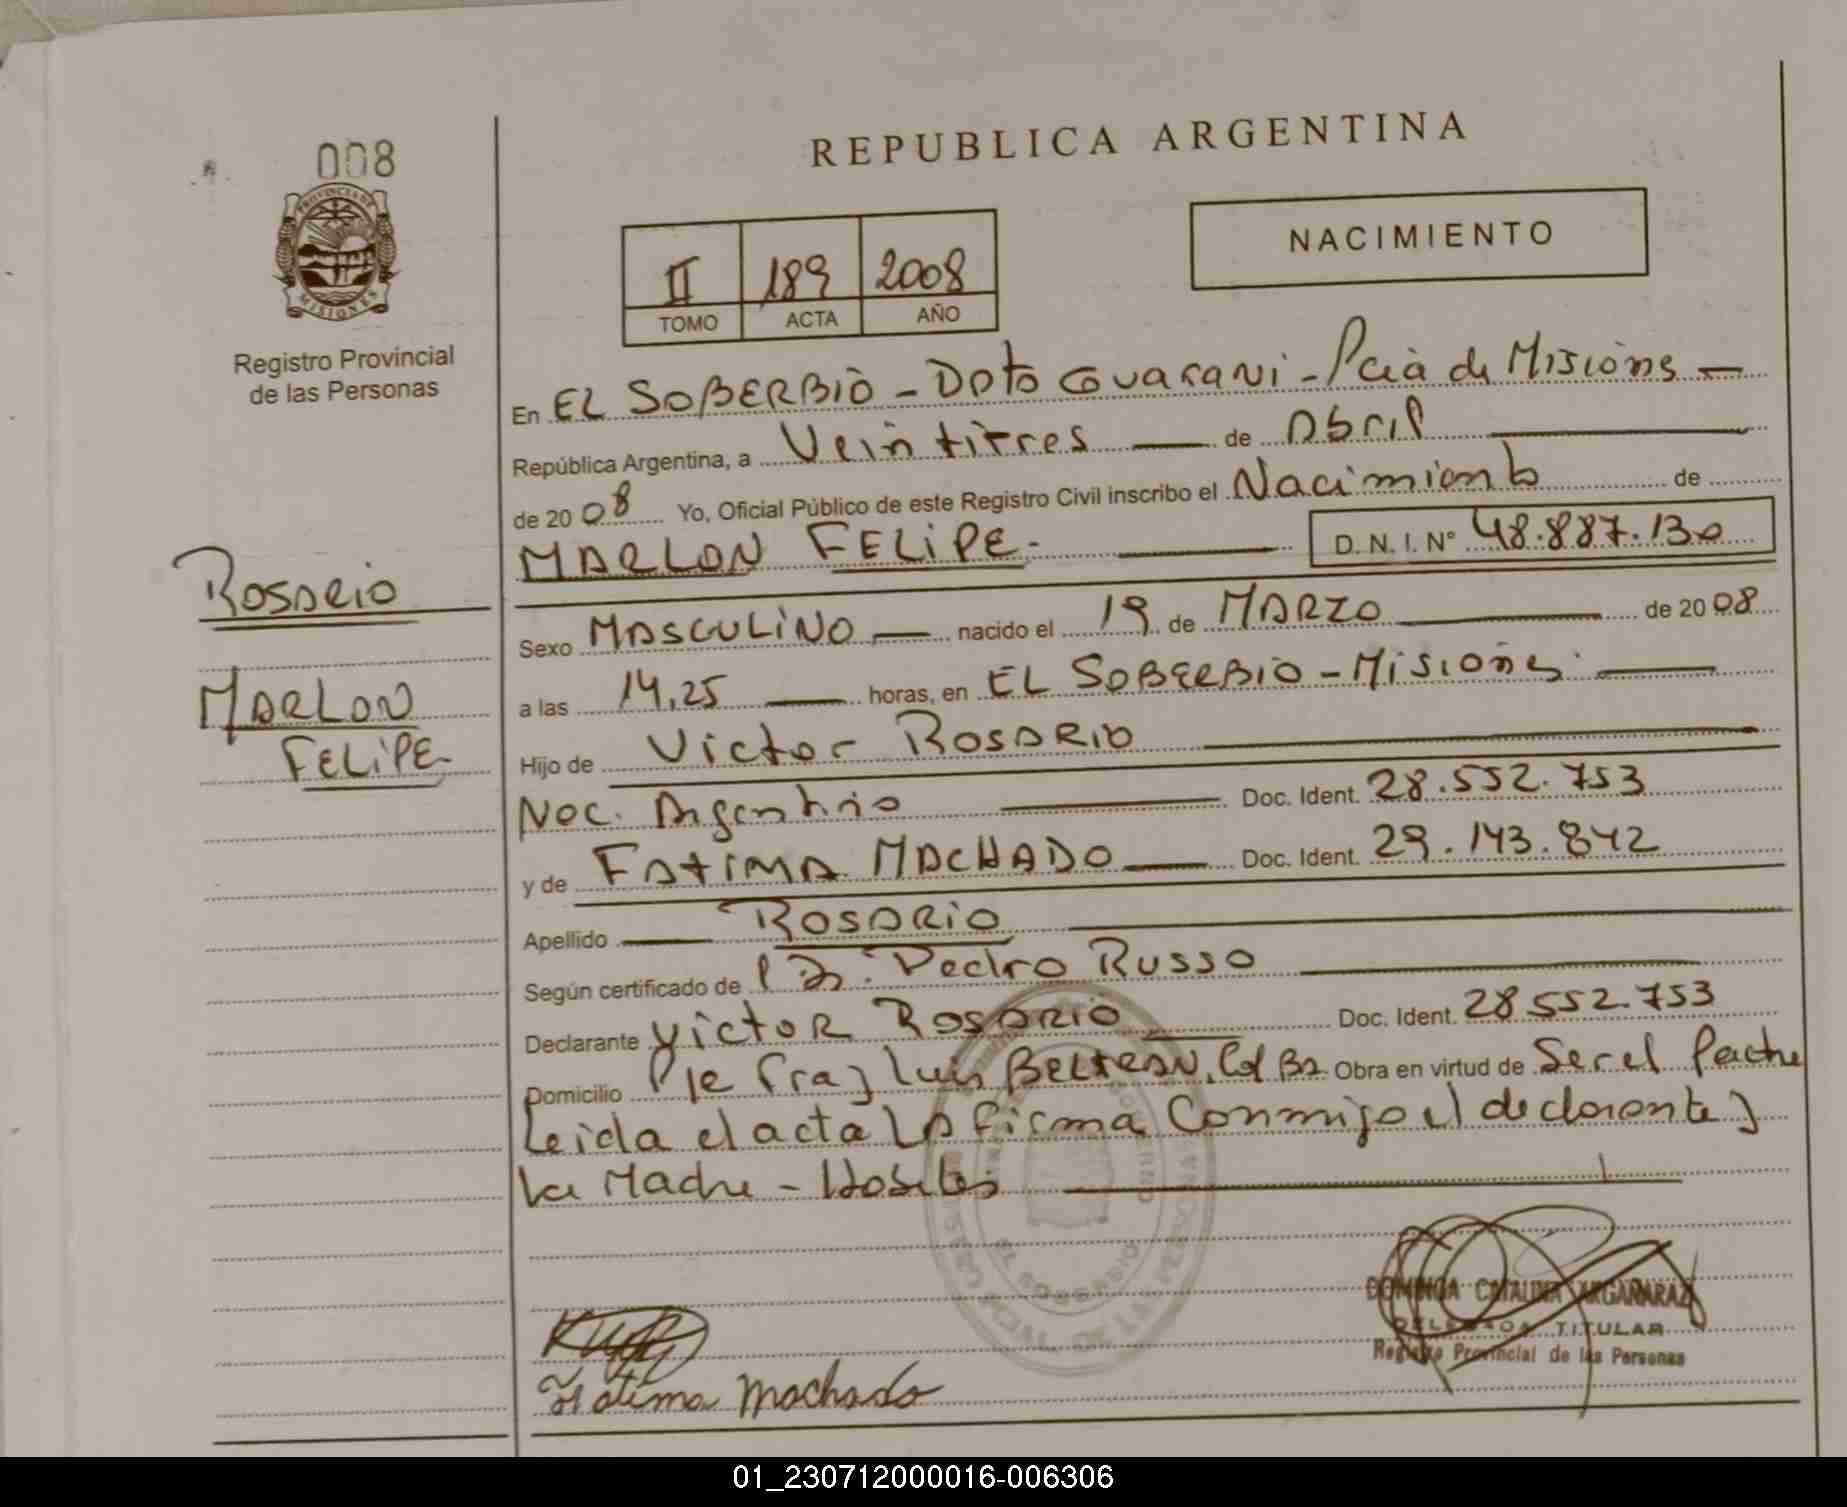 008
PROVINCIA DE
MISIONES
Registro Provincial
de las Personas
REPUBLICA ARGENTINA
II 189 2008
TOMO ACTA AÑO
NACIMIENTO
En EL SOBERBIO - Dpto Guarani - Pcia de Misiones
República Argentina, a Veintitres de Abril
de 2008 Yo, Oficial Público de este Registro Civil inscribo el Nacimiento de
MARLON FELIPE.- D.N.I. N° 48.887.130
Rosario
MARLON
FELIPE-
Sexo MASCULINO nacido el 19 de MARZO de 2008
a las 14,25 horas, en EL SOBERBIO - Misiones
Hijo de Victor ROSARIO
Nac. Argentino Doc. Ident. 28.552.753
y de FATIMA MACHADO Doc. Ident. 29.143.842
Apellido ROSARIO
Según certificado de Pedro Russo
Declarante Victor Rosario Doc. Ident. 28.552.753
Domicilio Pje Fray Luis BELTRAN, Obra en virtud de Ser el Padre
Leida el acta la firma Conmigo el declarante y
La Madre -
EL SOBERBIO
Fatima Machado
DOMINGA CATALINA ARGAÑARAZ
DELEGADA TITULAR
Registro Provincial de las Personas
01_230712000016-006306